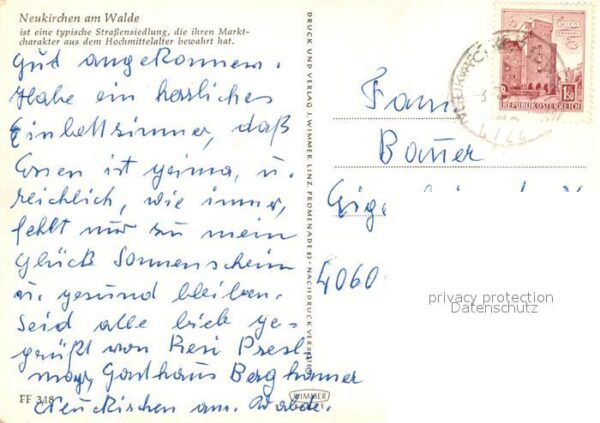 Neukirchen am Walde
ist eine typische Straßensiedlung, die ihren Markt-
charakter aus dem Hochmittelalter bewahrt hat.
Gut angekommen.
Habe ein herrliches
Einbettzimmer, daß
Essen ist prima, u.
reichlich, wie immer,
fehlt nur zu mein
Glück Sonnenschein
u. gesund bleiben.
Seid alle lieb ge-
grüßt von Resi
Gasthaus Berghamer
Neukirchen am. Walde.
FF 348
DRUCK UND VERLAG J. WIMMER, LINZ, PROMENADE 23 - NACHDRUCK VERBOTEN
WIMMER
REPUBLIK ÖSTERREICH
Fam
Bauer
4060
privacy protection
Datenschutz